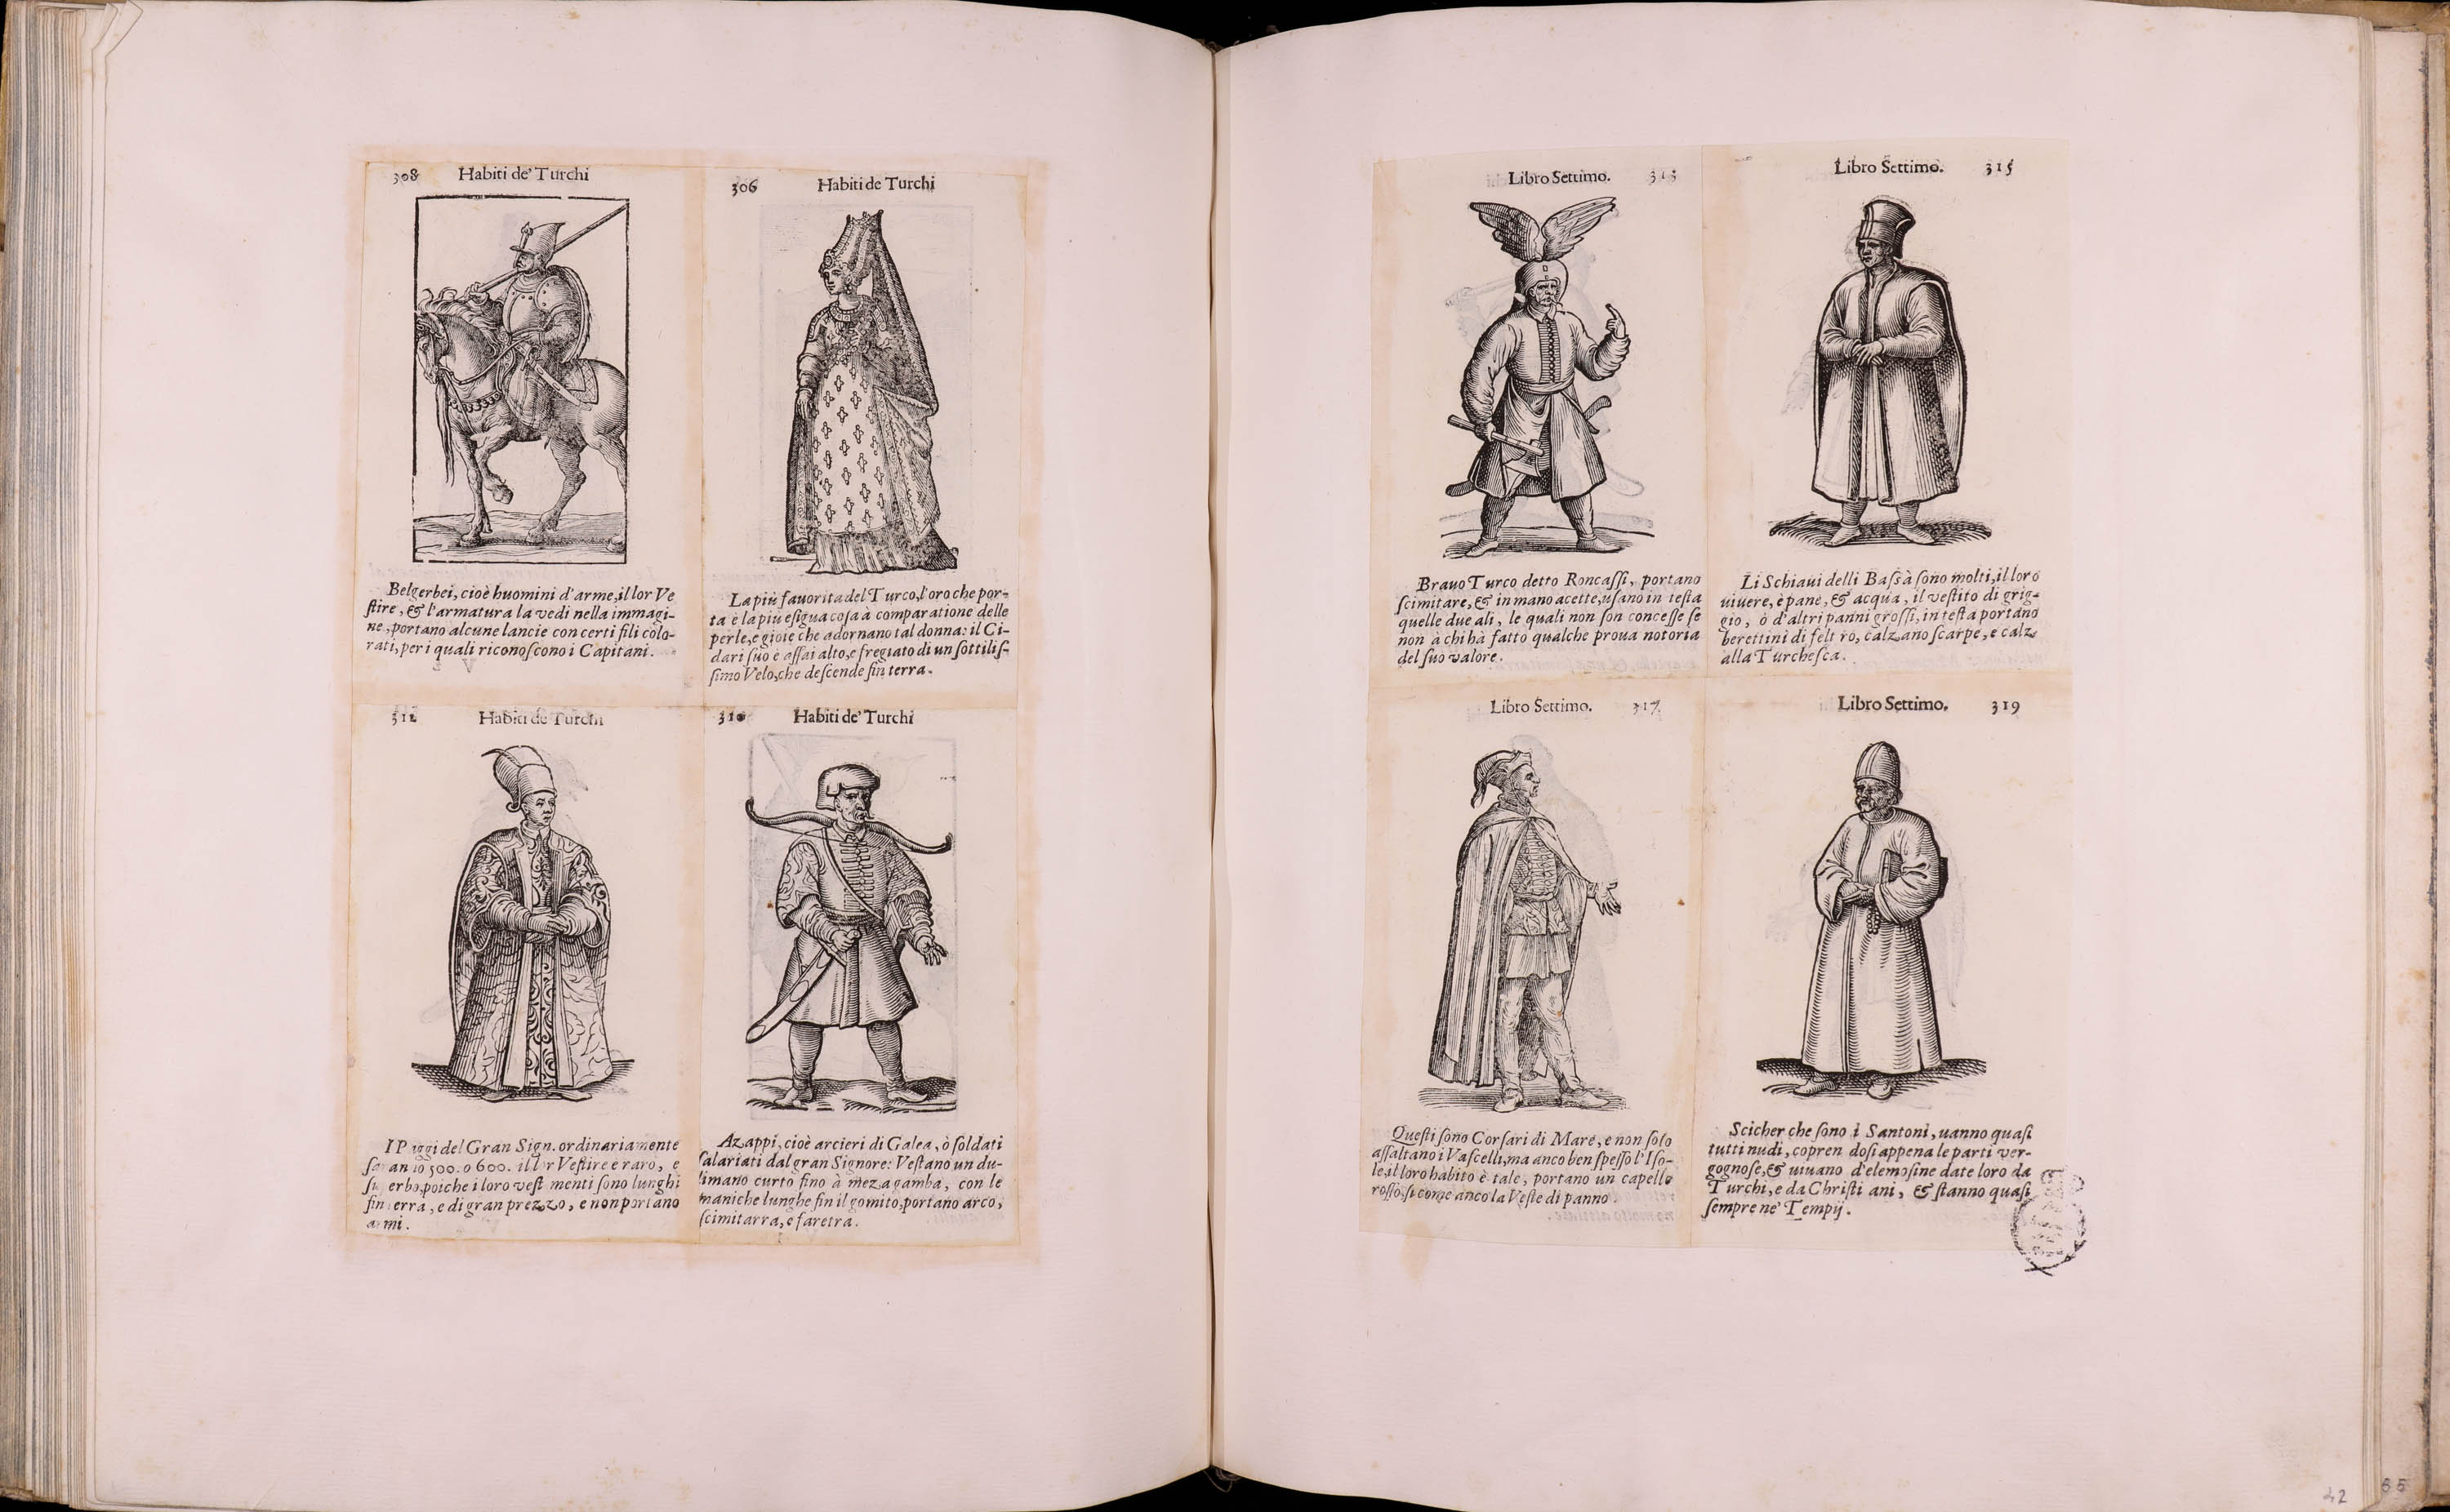 308 Habiti de' Turchi
Belgerbei, cioè huomini d'arme, il lor Ve
ſtire, & l'armatura la vedi nella immagi-
ne, portano alcune lancie con certi fili colo-
rati, per i quali riconoſcono i Capitani.
306 Habiti de Turchi
La più fauorita del Turco, l'oro che por-
ta è la più eſigua coſa à comparatione delle
perle, e gioie che adornano tal donna: il Ci-
dari ſuo è aſſai alto, e fregiato di un ſottiliſ-
ſimo Velo, che deſcende fin terra.
312 Habiti de Turchi
I Paggi del Gran Sign. ordinariamente
ſaranio 500. o 600. il lor Veſtire e raro, e
ſuperbo, poiche i loro veſtimenti ſono lunghi
fin terra, e di gran prezzo, e non portano
armi.
310 Habiti de' Turchi
Azappi, cioè arcieri di Galea, ò ſoldati
ſalariati dal gran Signore: Veſtano un du-
limano curto fino à meza gamba, con le
maniche lunghe fin il gomito, portano arco,
ſcimitarra, e faretra.
Libro Settimo. 313
Brauo Turco detto Roncaſſi, portano
ſcimitare, & in mano acette, uſano in teſta
quelle due ali, le quali non ſon conceſſe ſe
non à chi hà fatto qualche proua notoria
del ſuo valore.
Libro Settimo. 315
Li Schiaui delli Baſsà ſono molti, il loro
uiuere, è pane, & acqua, il veſtito di grig-
gio, ò d'altri panni groſſi, in teſta portano
berettini di feltro, calzano ſcarpe, e calze
alla Turcheſca.
Libro Settimo. 317
Queſti ſono Corſari di Mare, e non ſolo
aſſaltano i Vaſcelli, ma anco ben ſpeſſo l'Iſo-
le, il loro habito è tale, portano un capello
roſſo, ſi come anco la Veſte di panno.
Libro Settimo. 319
Scicher che ſono i Santoni, uanno quaſi
tutti nudi, copren doſi appena le parti ver-
gognoſe, & uiuano d'elemoſine date loro da
Turchi, e da Chriſti ani, & ſtanno quaſi
ſempre ne' Tempij.
42